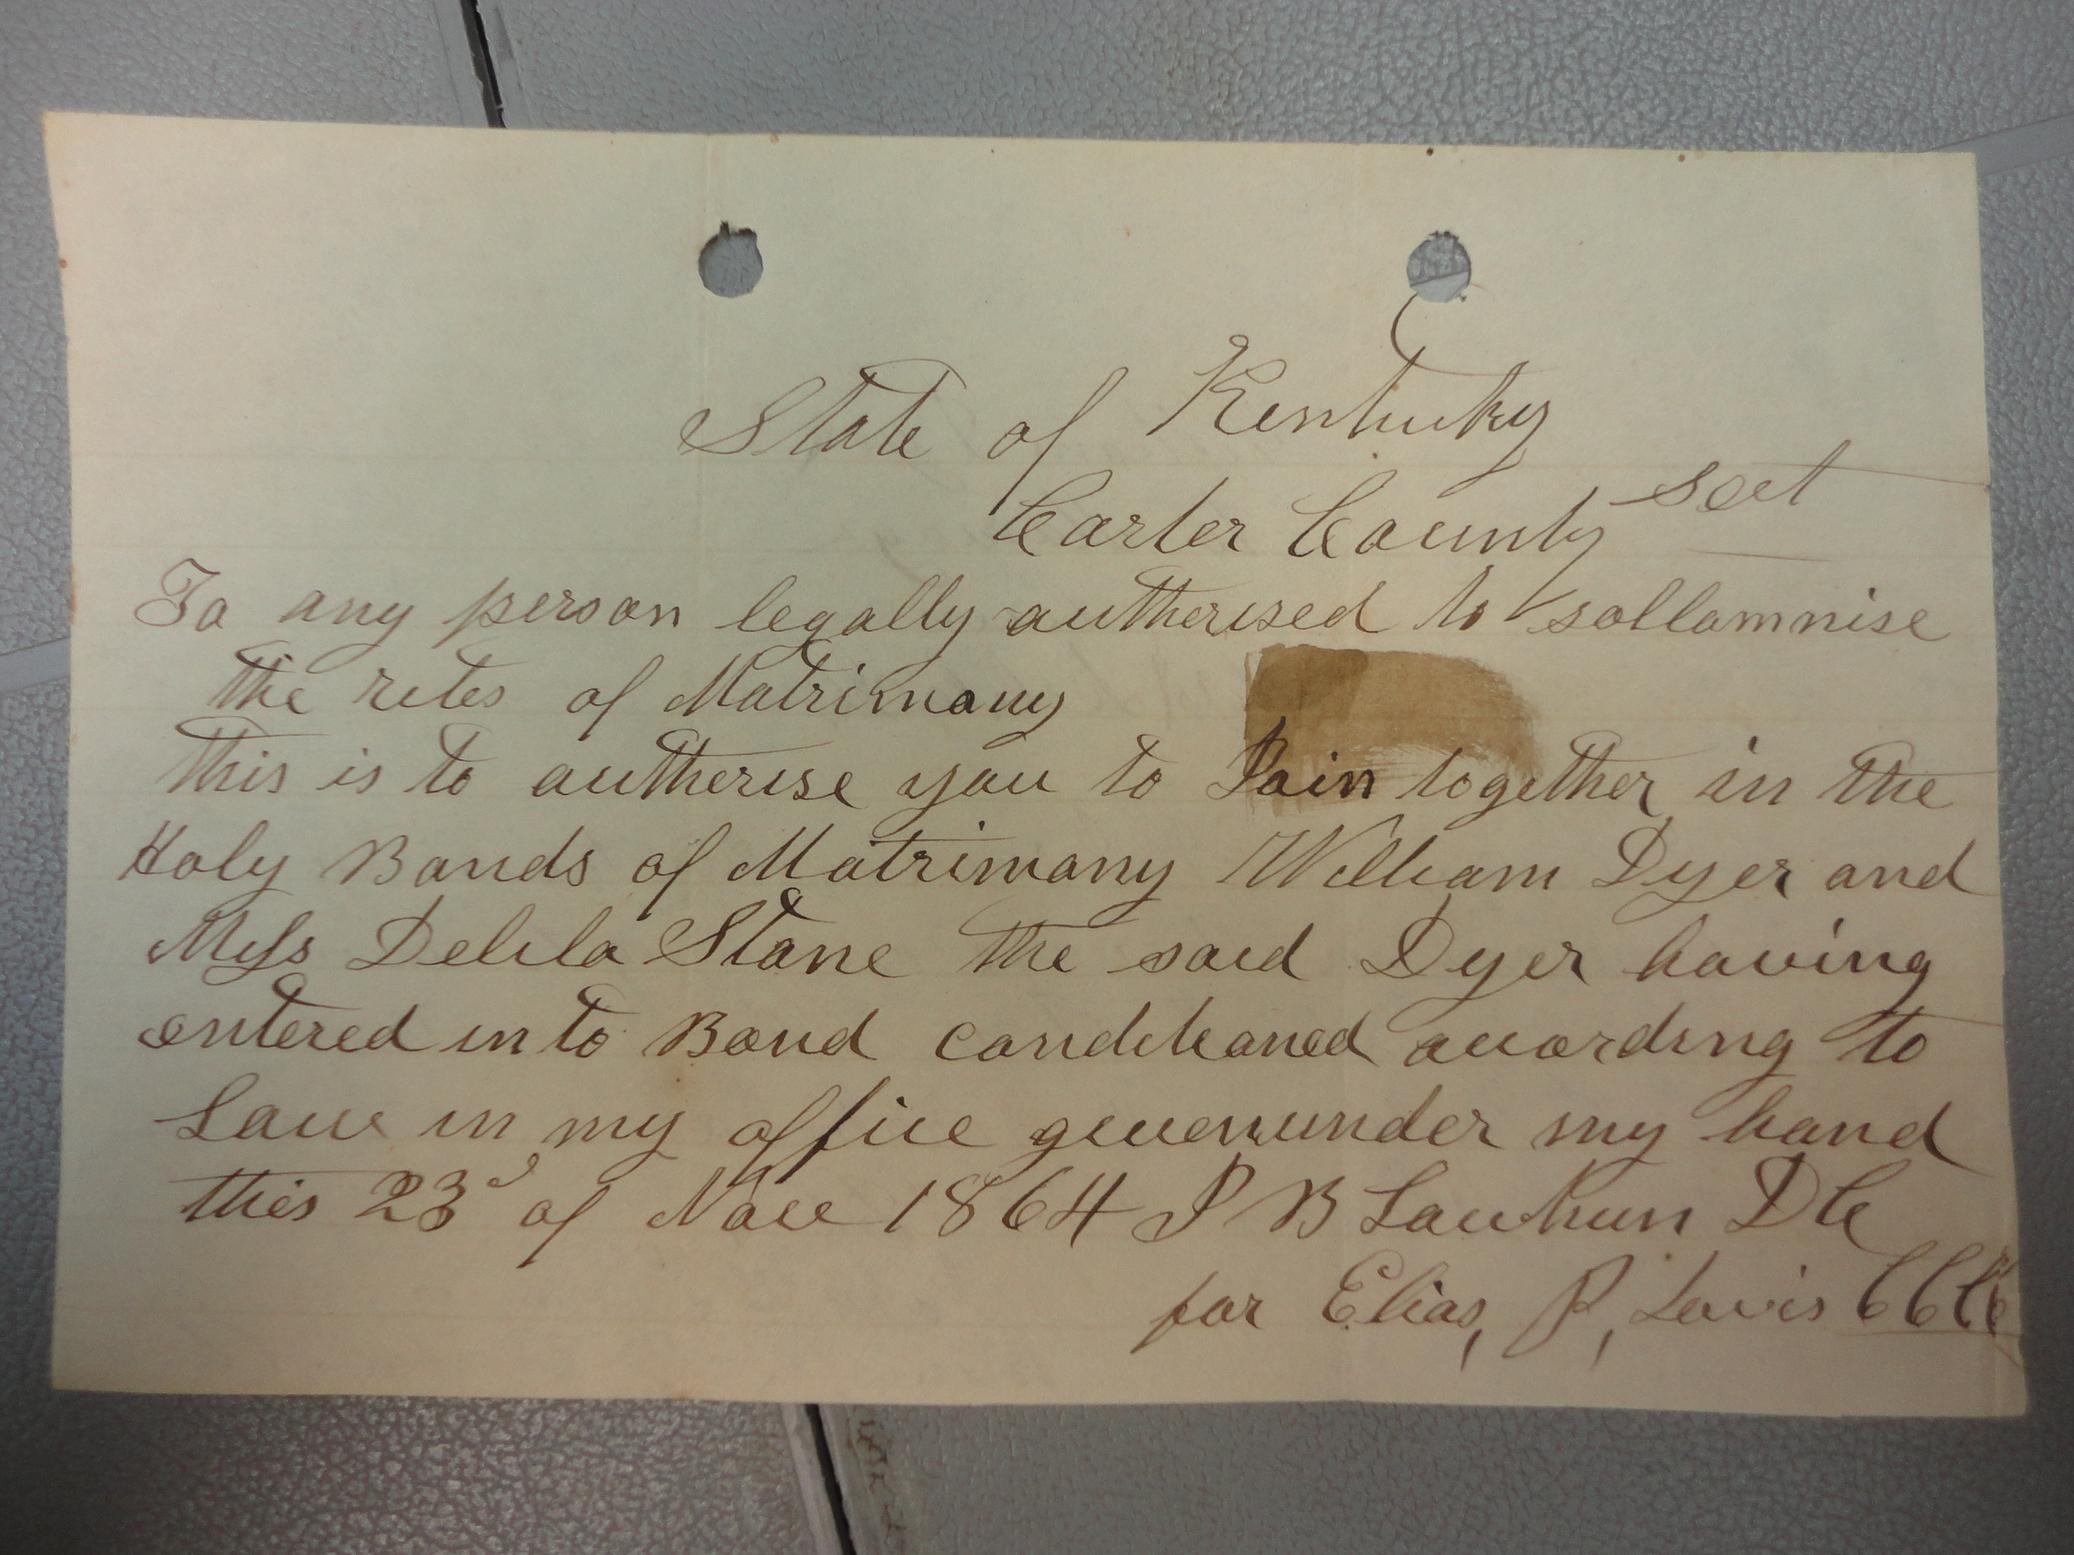 State of Kentucky
Carter County sct
To any person legally autherised to sollomnise
the rites of Matrimony
this is to autherise you to Join together in the
Holy Bonds of Matrimony William Dyer and
Miss Delila Stone the said Dyer having
entered into Bond conditioned according to
Law in my office given under my hand
this 23d of Nove 1864 J B Lawhun D C
for Elias, P, Davis CCC